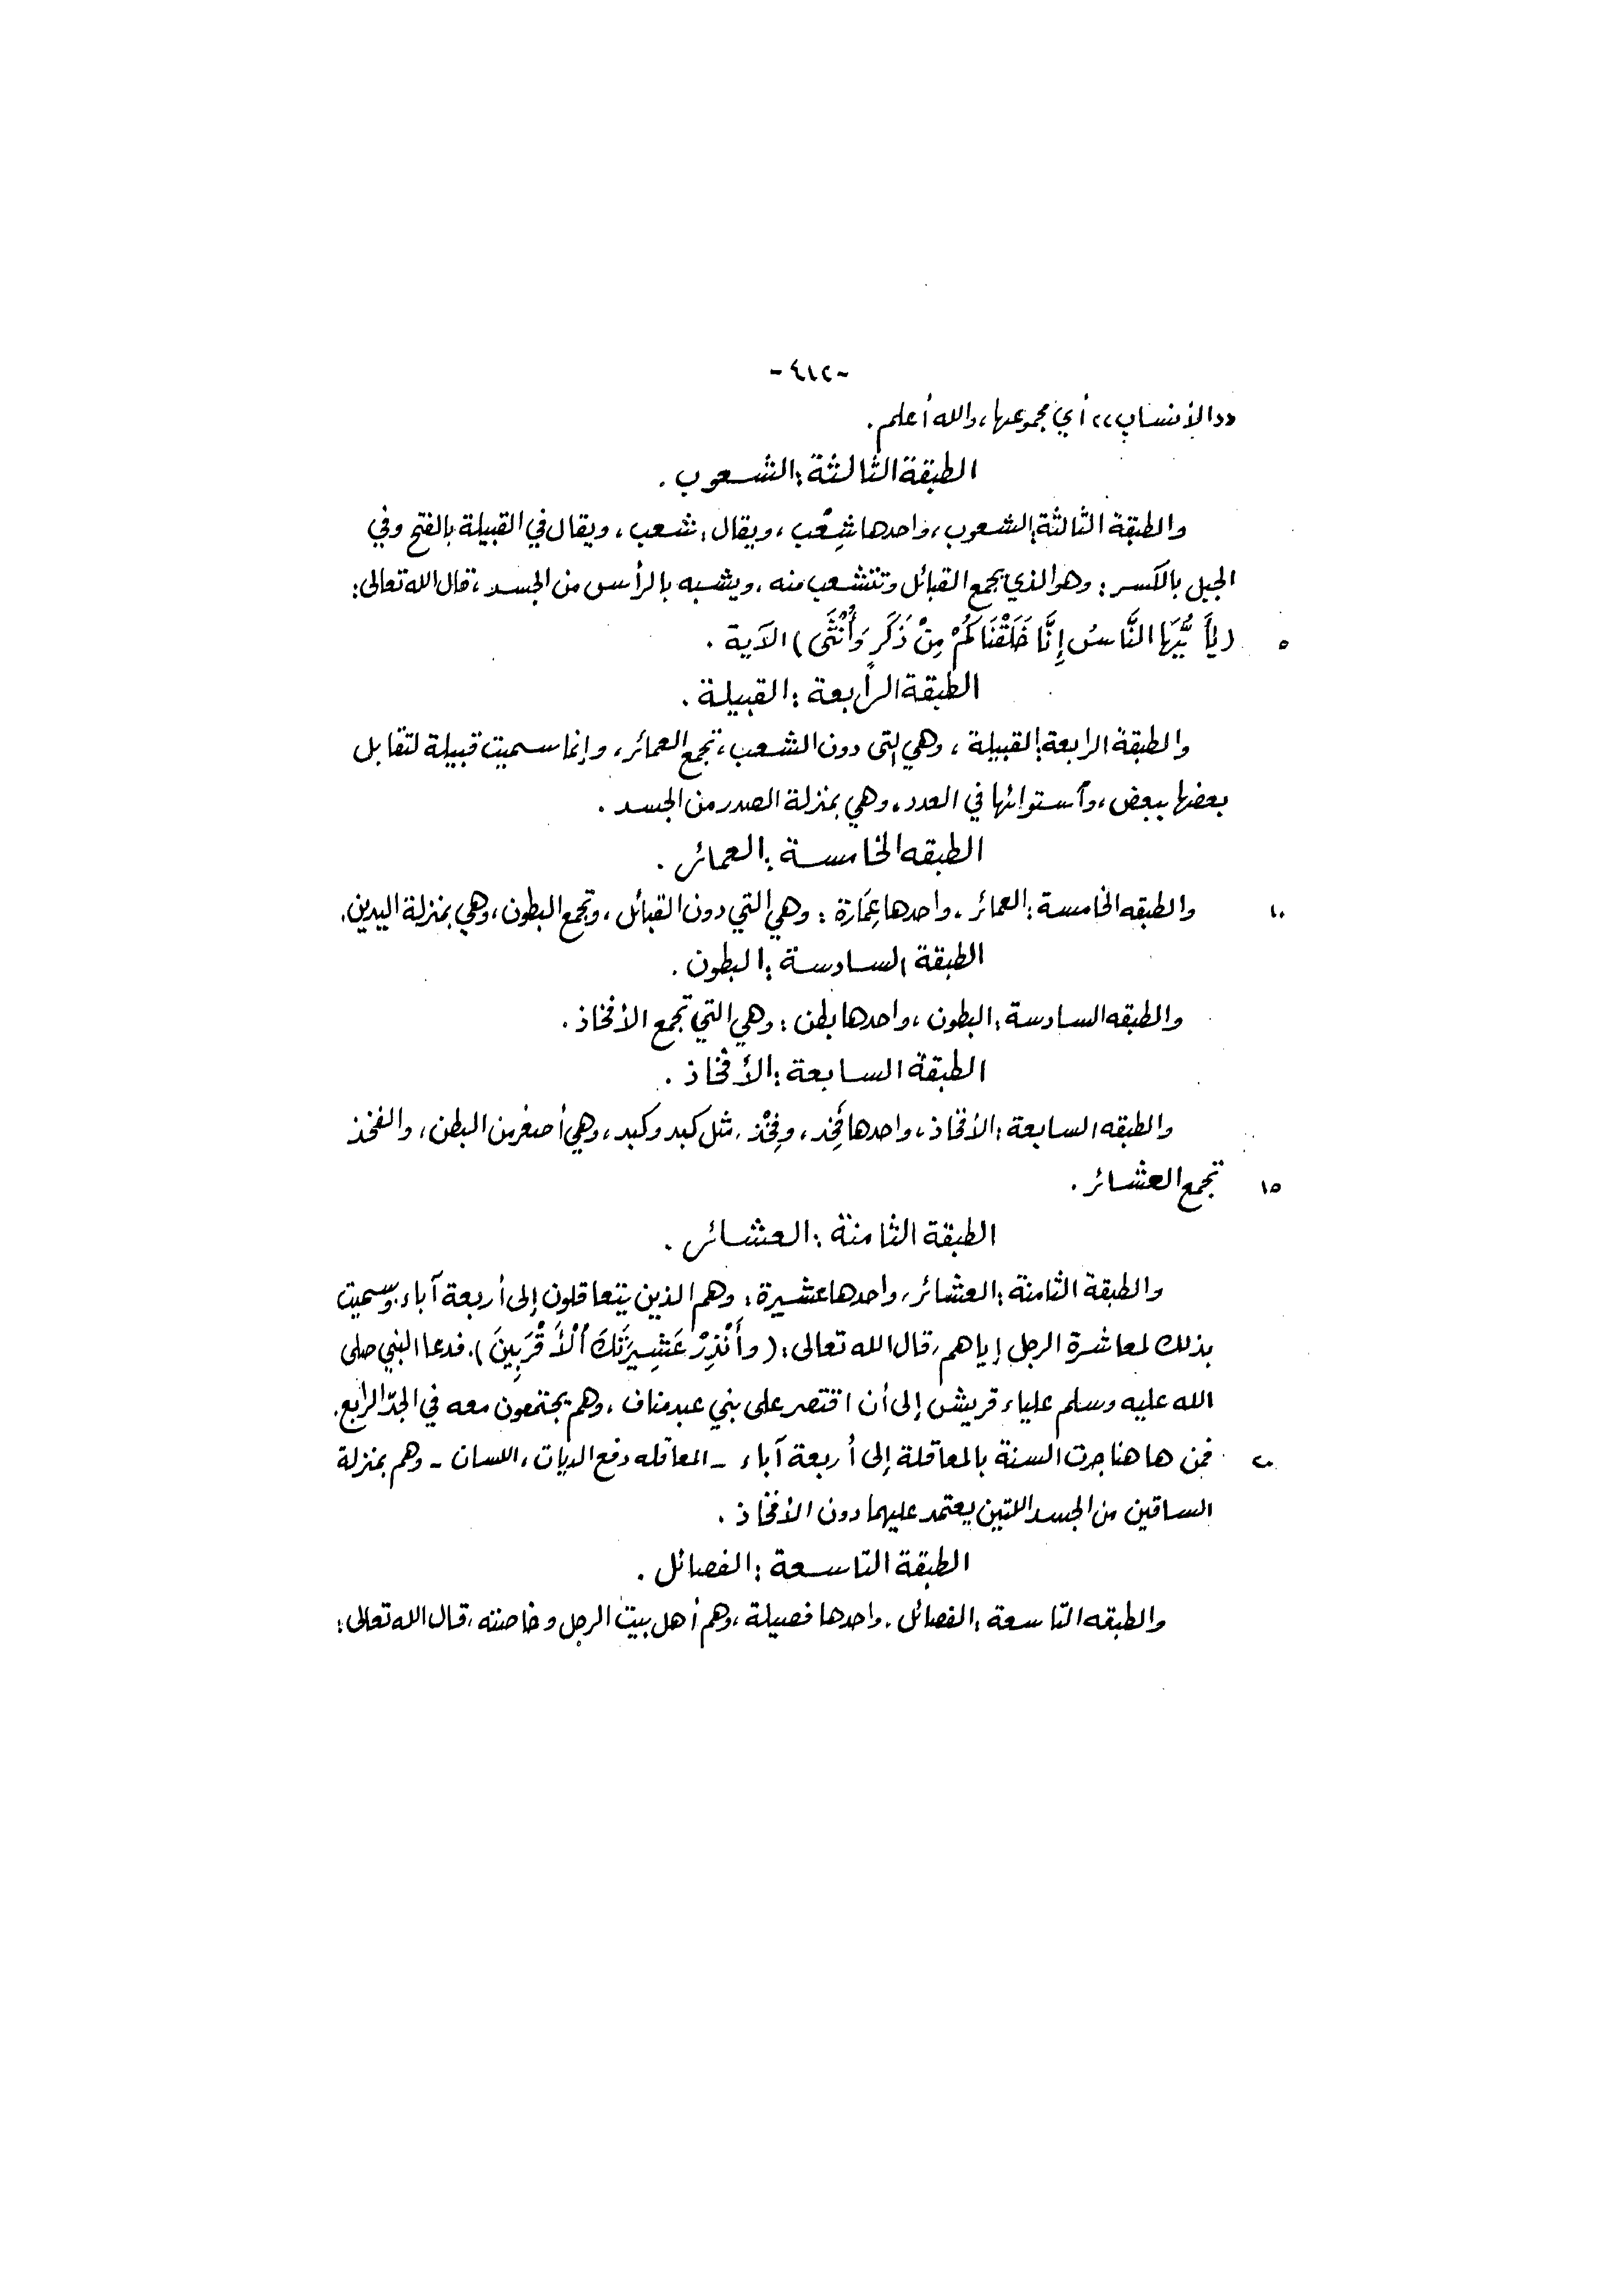 -٤١٢-
«الأنساب» أي مجموعها، والله أعلم.
الطبقة الثالثة: الشعوب.
والطبقة الثالثة: الشعوب، واحدها شِعْب، ويقال: شعب، ويقال في القبيلة بالفتح وفي
الجبل بالكسر: وهو الذي يجمع القبائل وتتشعب منه، ويشبه بالرأس من الجسد، قال الله تعالى:
٥ (يٰأَيُّهَا النَّاسُ إِنَّا خَلَقْنَاكُمْ مِنْ ذَكَرٍ وَأُنْثَى) الآية.
الطبقة الرابعة: القبيلة.
والطبقة الرابعة: القبيلة، وهي التي دون الشعب، تجمع العمائر، وإنما سميت قبيلة لتقابل
بعضها ببعض، وٱستوائها في العدد، وهي بمنزلة الصدر من الجسد.
الطبقه الخامسة: العمائر.
١٠ والطبقه الخامسة: العمائر، واحدها عِمَارَة: وهي التي دون القبائل، وتجمع البطون، وهي بمنزلة اليدين.
الطبقة السادسة: البطون.
والطبقه السادسة: البطون، واحدها بطن: وهي التي تجمع الأفخاذ.
الطبقة السابعة: الأفخاذ.
والطبقه السابعة: الأفخاذ، واحدها فَخِد، وفِخْذ، مثل كبد وكبد، وهي أصغر من البطن، والفخذ
١٥ تجمع العشائر.
الطبقة الثامنة: العشائر.
والطبقة الثامنة: العشائر، واحدها عشيرة: وهم الذين يتعاقلون إلى أربعة آباء، وسميت
بذلك لمعاشرة الرجل إياهم، قال الله تعالى: (وأَنْذِرْ عَشِيرَتَكَ ٱلْأَقْرَبِينَ). فدعا النبي صلى
الله عليه وسلم علياء قريش إلى أن اقتصر على بني عبد مناف، وهم يجتمعون معه في الجدّ الرابع.
٢٠ فمن ها هنا جرت السنة بالمعاقلة إلى أربعة آباء - المعاقله دفع الديات، اللسان - وهم بمنزلة
الساقين من الجسد اللتين يعتمد عليهما دون الأفخاذ.
الطبقة التاسعة: الفصائل.
والطبقه التاسعة: الفصائل، واحدها فصيلة، وهم أهل بيت الرجل وخاصته، قال الله تعالى: